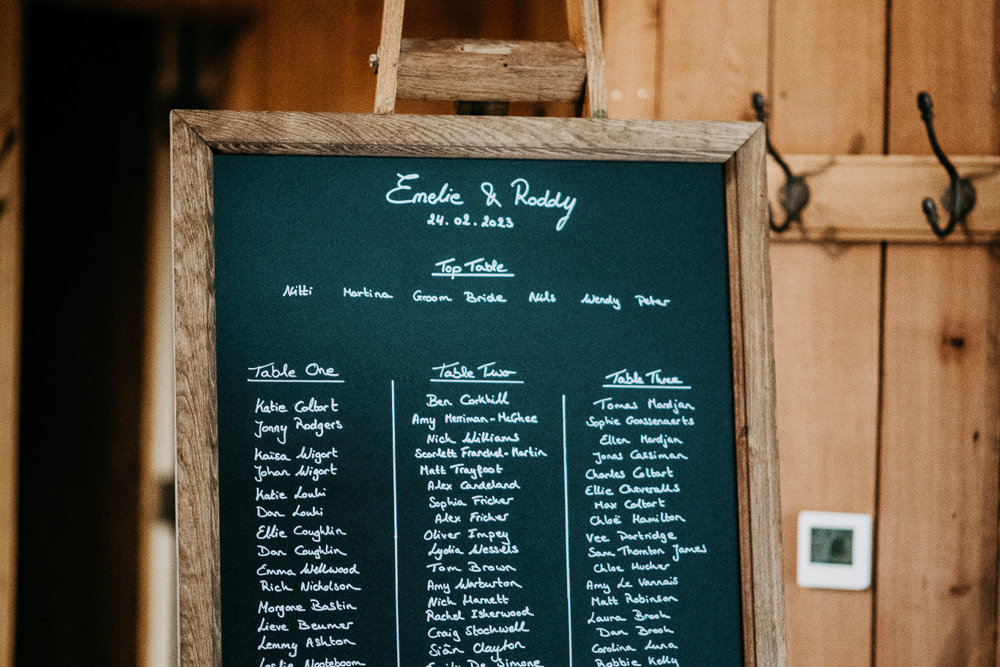 Emelie & Roddy
24.02.2023
Top Table
Nitti Martina Groom Bride Nils Wendy Peter
Table One
Katie Colbart
Jonny Rodgers
Kaisa Wigart
Johan Wigart
Katie Louki
Dan Louki
Ellie Coughlin
Dan Coughlin
Emma Wellwood
Rich Nicholson
Morgane Bastin
Lieve Beumer
Lemmy Ashton
Leslie Nooteboom
Table Two
Ben Corkhill
Amy Merriman-McGhee
Nich Williams
Scarlett Franchel-Martin
Matt Trayfoot
Alex Candeland
Sophia Fricker
Alex Fricker
Oliver Impey
Lydia Wessels
Tom Brown
Amy Warburton
Nich Harnett
Rachel Isherwood
Craig Stockwell
Siân Clayton
De Simone
Table Three
Tomas Mardjan
Sophie Goossenaerts
Ellen Mardjan
Jonas Cassiman
Charles Colbart
Ellie Cheveralls
Max Colbart
Chloë Hamilton
Vee Partridge
Sam Thornton James
Chloe Hucker
Amy Le Vannais
Matt Robinson
Laura Brook
Dan Brook
Carolina Luna
Robbie Kelly